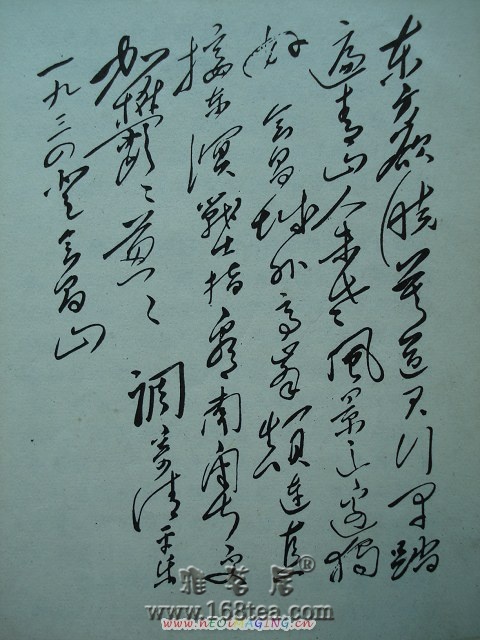 东方欲晓莫道君行早踏
遍青山人未老風景这边独
好 会昌城外高峯颠连直
接东溟戰士指看南粤更
加鬱〻葱〻 調寄清平乐
一九三四登会昌山
雅茗居®
www.168tea.com
www.NEOIMAGING.cn